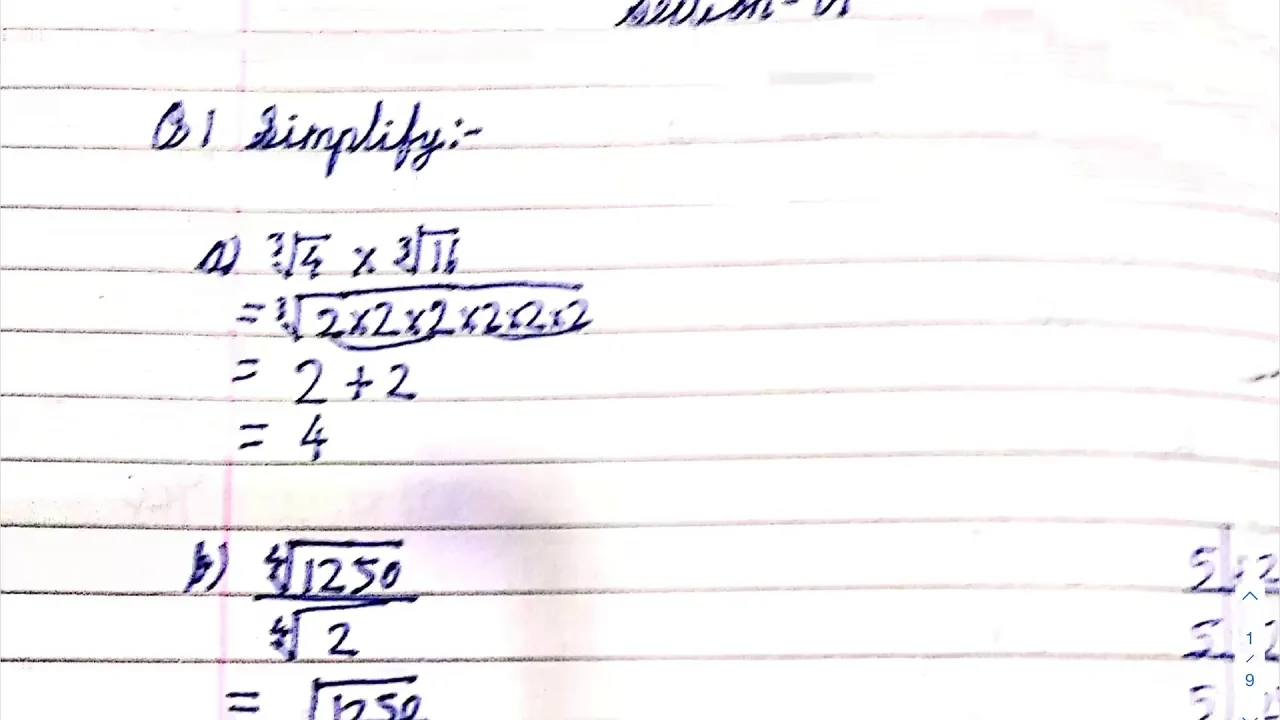 Q1 Simplify:-
a) ∛4 × ∛16
= ∛2×2×2×2×2×2
= 2 + 2
= 4
b) ∜1250
∜2
= √1250
5
5
5
1
/
9